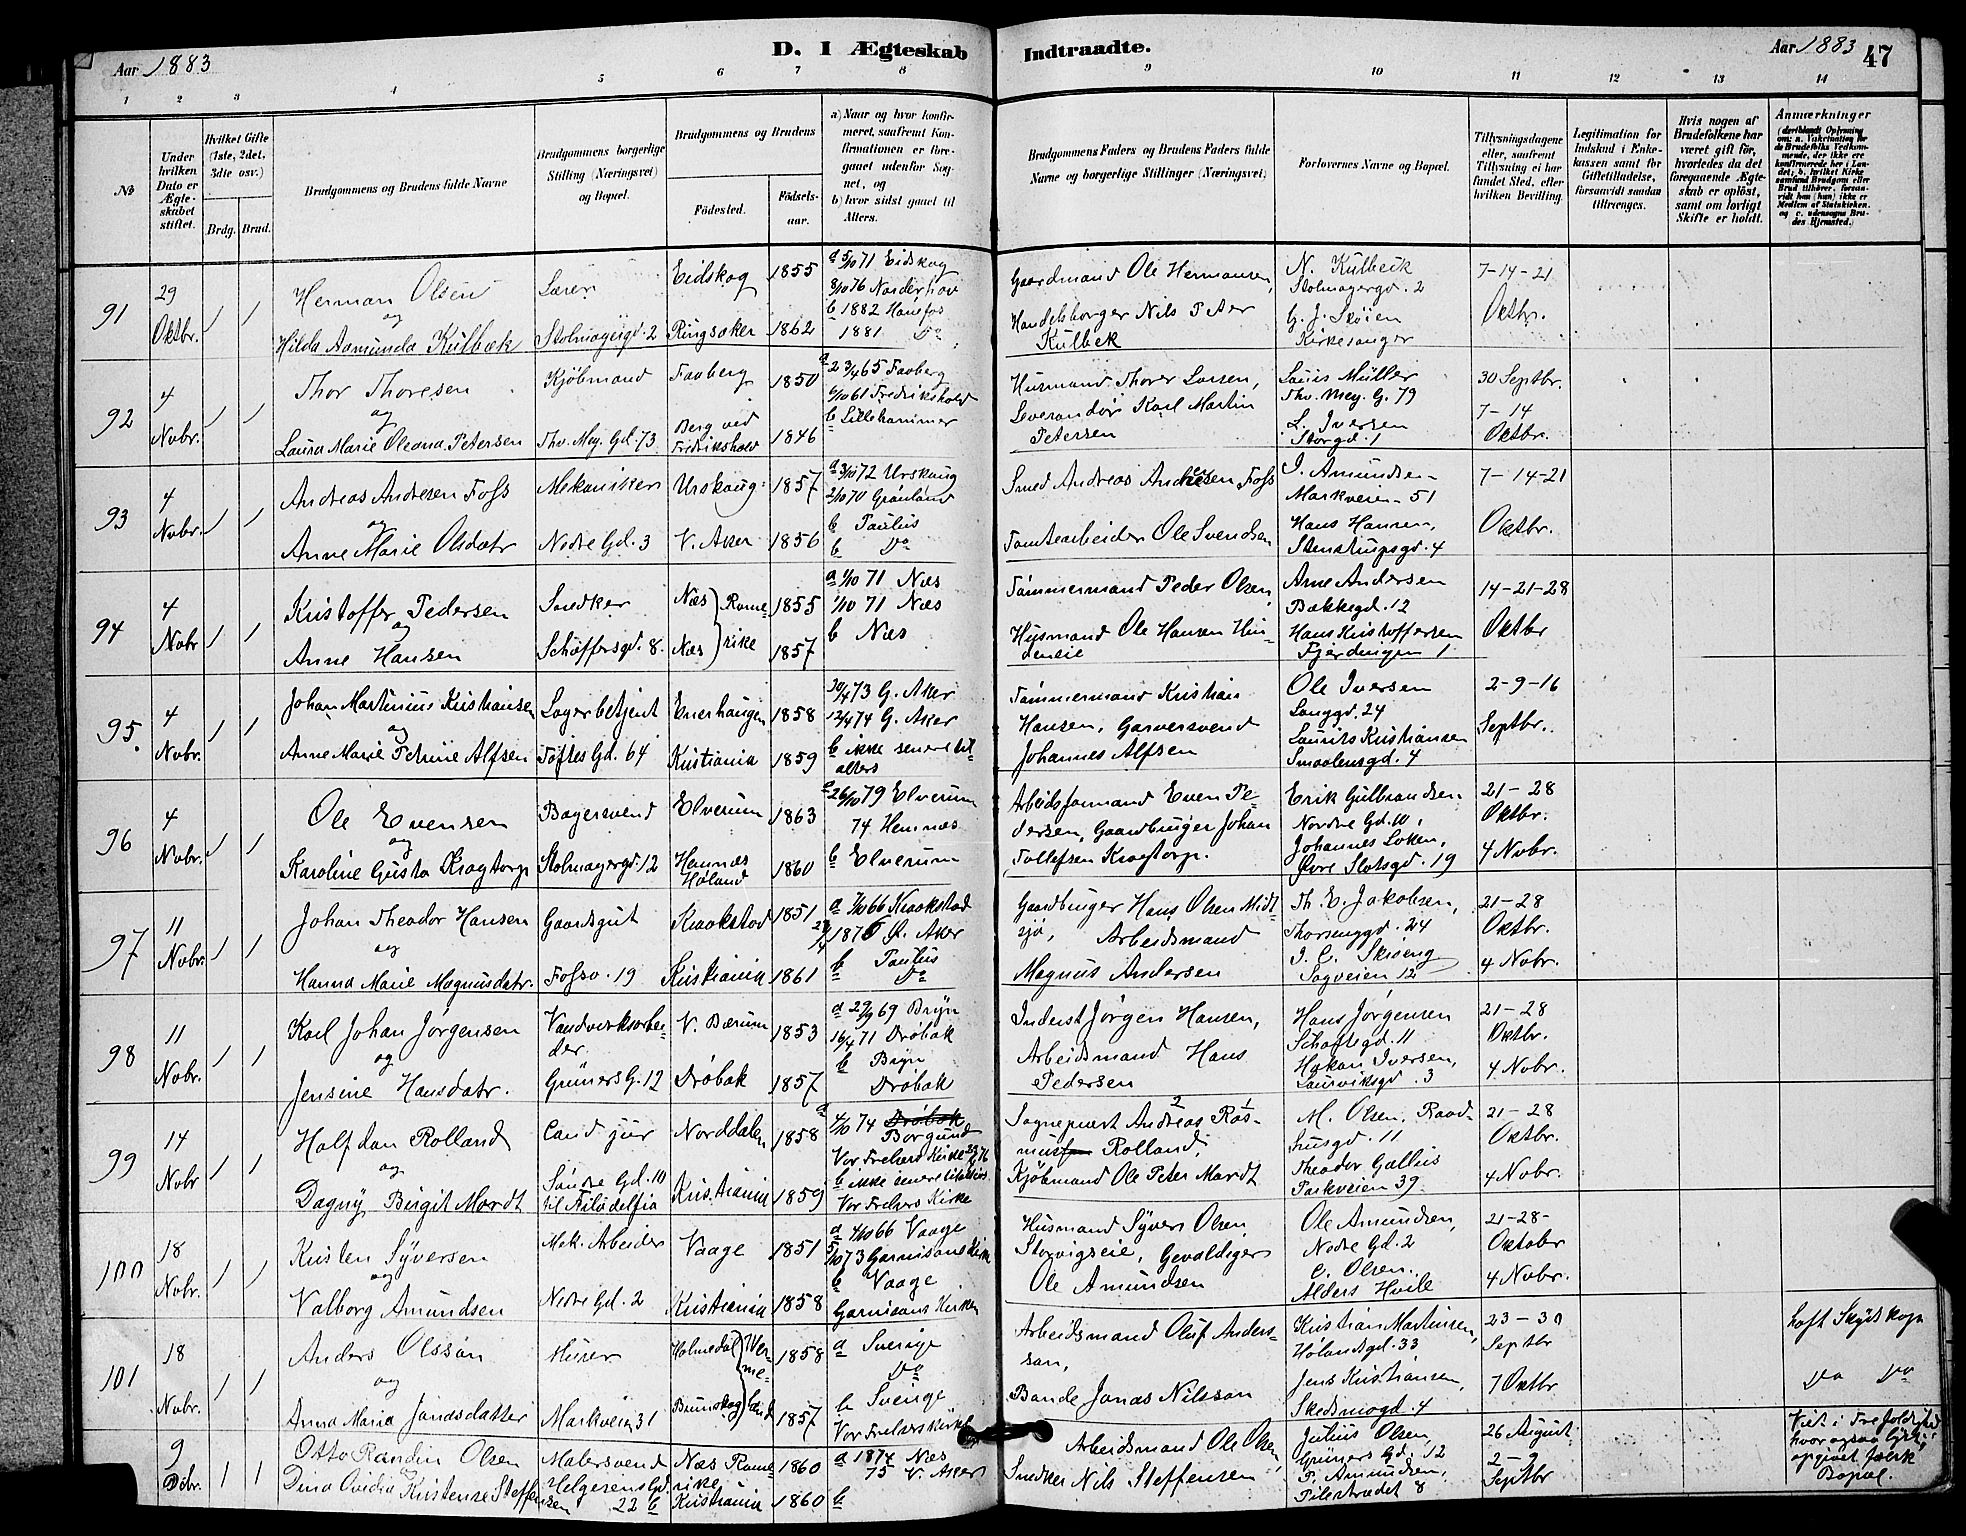 Aar 1883
D. I Ægteskab Indtraadte.
Aar 1883 47
1 2 3 4 5 6 7 8 9 10 11 12 13 14
No
Under hvilken Dato er Ægteskabet stiftet.
Hvilket Gifte (1ste, 2det, 3die osv.)
Brdg. Brud.
Brudgommens og Brudens fulde Navne
Brudgommens borgerlige Stilling (Næringsvei) og Bopæl.
Brudgommens og Brudens
Fødested.
Fødselsaar.
a) Naar og hvor konfirmeret, saafremt Konfirmationen er foregaaet udenfor Sognet, og
b) hvor sidst gaaet til Alters.
Brudgommens Faders og Brudens Faders fulde Navne og borgerlige Stillinger (Næringsvei)
Forlovernes Navne og Bopæl.
Tillysningsdagene eller, saafremt Tillysning ei har fundet Sted, efter hvilken Bevilling.
Legitimation for Indskud i Enkekassen samt for Giftetilladelse, forsaavidt saadan tiltrænges.
Hvis nogen af Brudefolkene har været gift før, hvorledes da det foregaaende Ægteskab er opløst, samt om lovligt Skifte er holdt.
Anmærkninger
91
29 Oktbr.
1 1
Herman Olsen
og
Hilda Aamunda Kulbæk
Lærer
Stolmagergd. 2
Eidskog 1855
Ringsaker 1862
a 5/10 71 Eidskog
8/10 76 Norderhov
b 1882 Hønefos
1881 Do
Gaardmand Ole Hermansen,
Handelsborger Nils Peter
Kulbek
N. Kulbeck
Stolmagergd. 2
G. J. Skøien
Kirkesanger
7-14-21
Oktbr.
92
4 Novbr.
1 1
Thor Thoresen
og
Laura Marie Oleana Petersen
Kjøbmand
Thv. Mey. Gd. 73
Faaberg 1850
Berg ved Fredrikshald 1846
a 2/4 65 Faaberg
6/10 61 Fredrikshald
b Lillehammer
Husmand Thor Larsen,
Leverandør Karl Martin
Petersen
Lauis Müller
Thv. Mey. G. 79
L. Iversen
Storgd. 1
30 Septbr.
7-14
Oktbr.
93
4 Novbr.
1 1
Andreas Andresen Foss
og
Anne Marie Olsdatr
Mekaniker
Nedre Gd. 3
Urskaug 1857
V. Aker 1856
a 3/10 72 Urskaug
2/10 70 Grønland
b Paulus
b Do
Smed Andreas Andresen Foss
Tomtearbeider Ole Svendsen
I. Amundsen
Markveien 51
Hans Hansen,
Stenstrupsgd. 4
7-14-21
Oktbr.
94
4 Novbr
1 1
Kristoffer Pedersen
og
Anne Hansen
Snedker
Schøffersgd. 8.
Næs Romerike 1855
Næs 1857
a 1/10 71 Næs
1/10 71 Næs
b Næs
Tømmermand Peder Olsen,
Husmand Ole Hansen
Arne Andersen
Bakkegd. 12
Hans Kristoffersen
Fjerdingen 1
14-21-28
Oktbr
95.
4 Novbr.
1 1
Johan Martinius Kristiansen
og
Anne Marie Petrine Alfsen
Lagerbetjent
Toftes Gd. 64
Enerhaugen 1858
Kristiania 1859
30/4 73 G. Aker
12/4 74 G. Aker
b ikke senere til
alters
Tømmermand Kristian
Hansen, Garversvend
Johannes Alfsen
Ole Iversen
Langgd. 24
Laurits Kristiansen
Smaalensgd. 4
2-9-16
Septbr.
96
4 Novbr.
1 1
Ole Evensen
og
Karoline Gusta Kragtorp
Bagersvend
Stolmagergd. 12
Elverum 1863
Hemnæs Høland 1860
a 26/10 79 Elverum
74 Hemnæs
b Elverum
Arbeidsformand Even Pedersen,
Gaardbruger Johan
Tollefsen Kragtorp.
Erik Gulbrandsen
Nordre Gd. 10,
Johannes Loken,
Øvre Slotsgd. 19
21-28
Oktbr.
4 Novbr.
97
11 Novbr.
1 1
Johan Theodor Hansen
og
Hanna Marie Magnusdatr.
Gaardsgut
Fossv. 19
Kraakstad 1851
Kristiania 1861
a 7/10 66 Kraakstad
1876 Ø. Aker
b Paulus
Do
Gaardbruger Hans Olsen Midtsjø,
Arbeidsmand
Magnus Andersen
Th. E. Jakobsen,
Thorsenggd. 24
I. C. Skiøeng
Sagveien 12
21-28
Oktbr.
4 Novbr.
98
11 Novbr.
1 1
Karl Johan Jørgensen
og
Jensine Hansdatr.
Vandverksarbeider
Grüners G. 12
V. Bærum 1853
Drøbak 1857
a 29/9 69 Bryn
16/4 71 Drøbak
b Bryn
Drøbak
Inderst Jørgen Hansen,
Arbeidsmand Hans
Pedersen
Hans Jørgensen
Schoftsgd. 11
Hakon Iversen,
Laurviksgd. 3
21-28
Oktbr.
4 Novbr.
99
14 Novbr
1 1
Halfdan Rolland
og
Dagny Birgit Mardt
Cand jur
Søndre Gd. 10
til Filadelfia
Norddalen 1858
Kristiania 1859
a 4/10 74 Drøbak
Borgund
Vor Frelsers Kirke
b ikke senere til alters
Vor Frelsers Kirke
Sogneprest Andreas Rasmus Rolland,
Kjøbmand Ole Peter Mardt
M. Olsen, Raadhusgd. 11
Theodor Gallus
Parkveien 39.
21-28
Oktbr.
4 Novbr.
100
18 Novbr.
1 1
Kristen Syversen
og
Valborg Amundsen
Mek. Arbeider
Nedre Gd. 2
Vaage 1851
Kristiania 1858
a 4/10 66 Vaage
5/10 73 Garnisons Kirk
b Vaage
Garnisons Kirken
Husmand Syver Olsen
Storvigseie, Gevaldiger
Ole Amundsen
Ole Amundsen,
Nedre Gd. 2
C. Olsen.
Alders Hvile
21-28-
Oktober
4 Novbr.
101
18 Novbr.
1 1
Anders Olsson
og
Anna Maria Jonasdatter
Murer
Markveien 31
Holmedal Vermeland 1858
Brunskog 1857
a Sverige
Do
b Sverige
Vor Frelsers Kirke
Arbeidsmand Oluf Andersson,
Bonde Jonas Nilsson
Kristian Martinsen,
Hølandsgd. 33
Jens Kristiansen,
Skedsmogd. 4
23-30
Septbr
7 Oktbr
Løst Skudskop
Do Do
9 Dcbr.
1 1
Otto Randin Olsen
og
Dina Ovidia Kristense Steffensen
Malersvend
Helgesens Gd.
22 b
Næs Romerike 1860
Kristiania 1860
a 1874 Næs
75 V. Aker
b
Arbeidsmand Ole Olsen,
Snedker Nils Steffensen
Julius Olsen,
Grüners Gd. 12
P. Amundsen,
Pilestrædet 8
26 August
2-9
Septbr
Viet i Trefoldighed
hvor ogsaa
opgivet falsk
Bopæl.